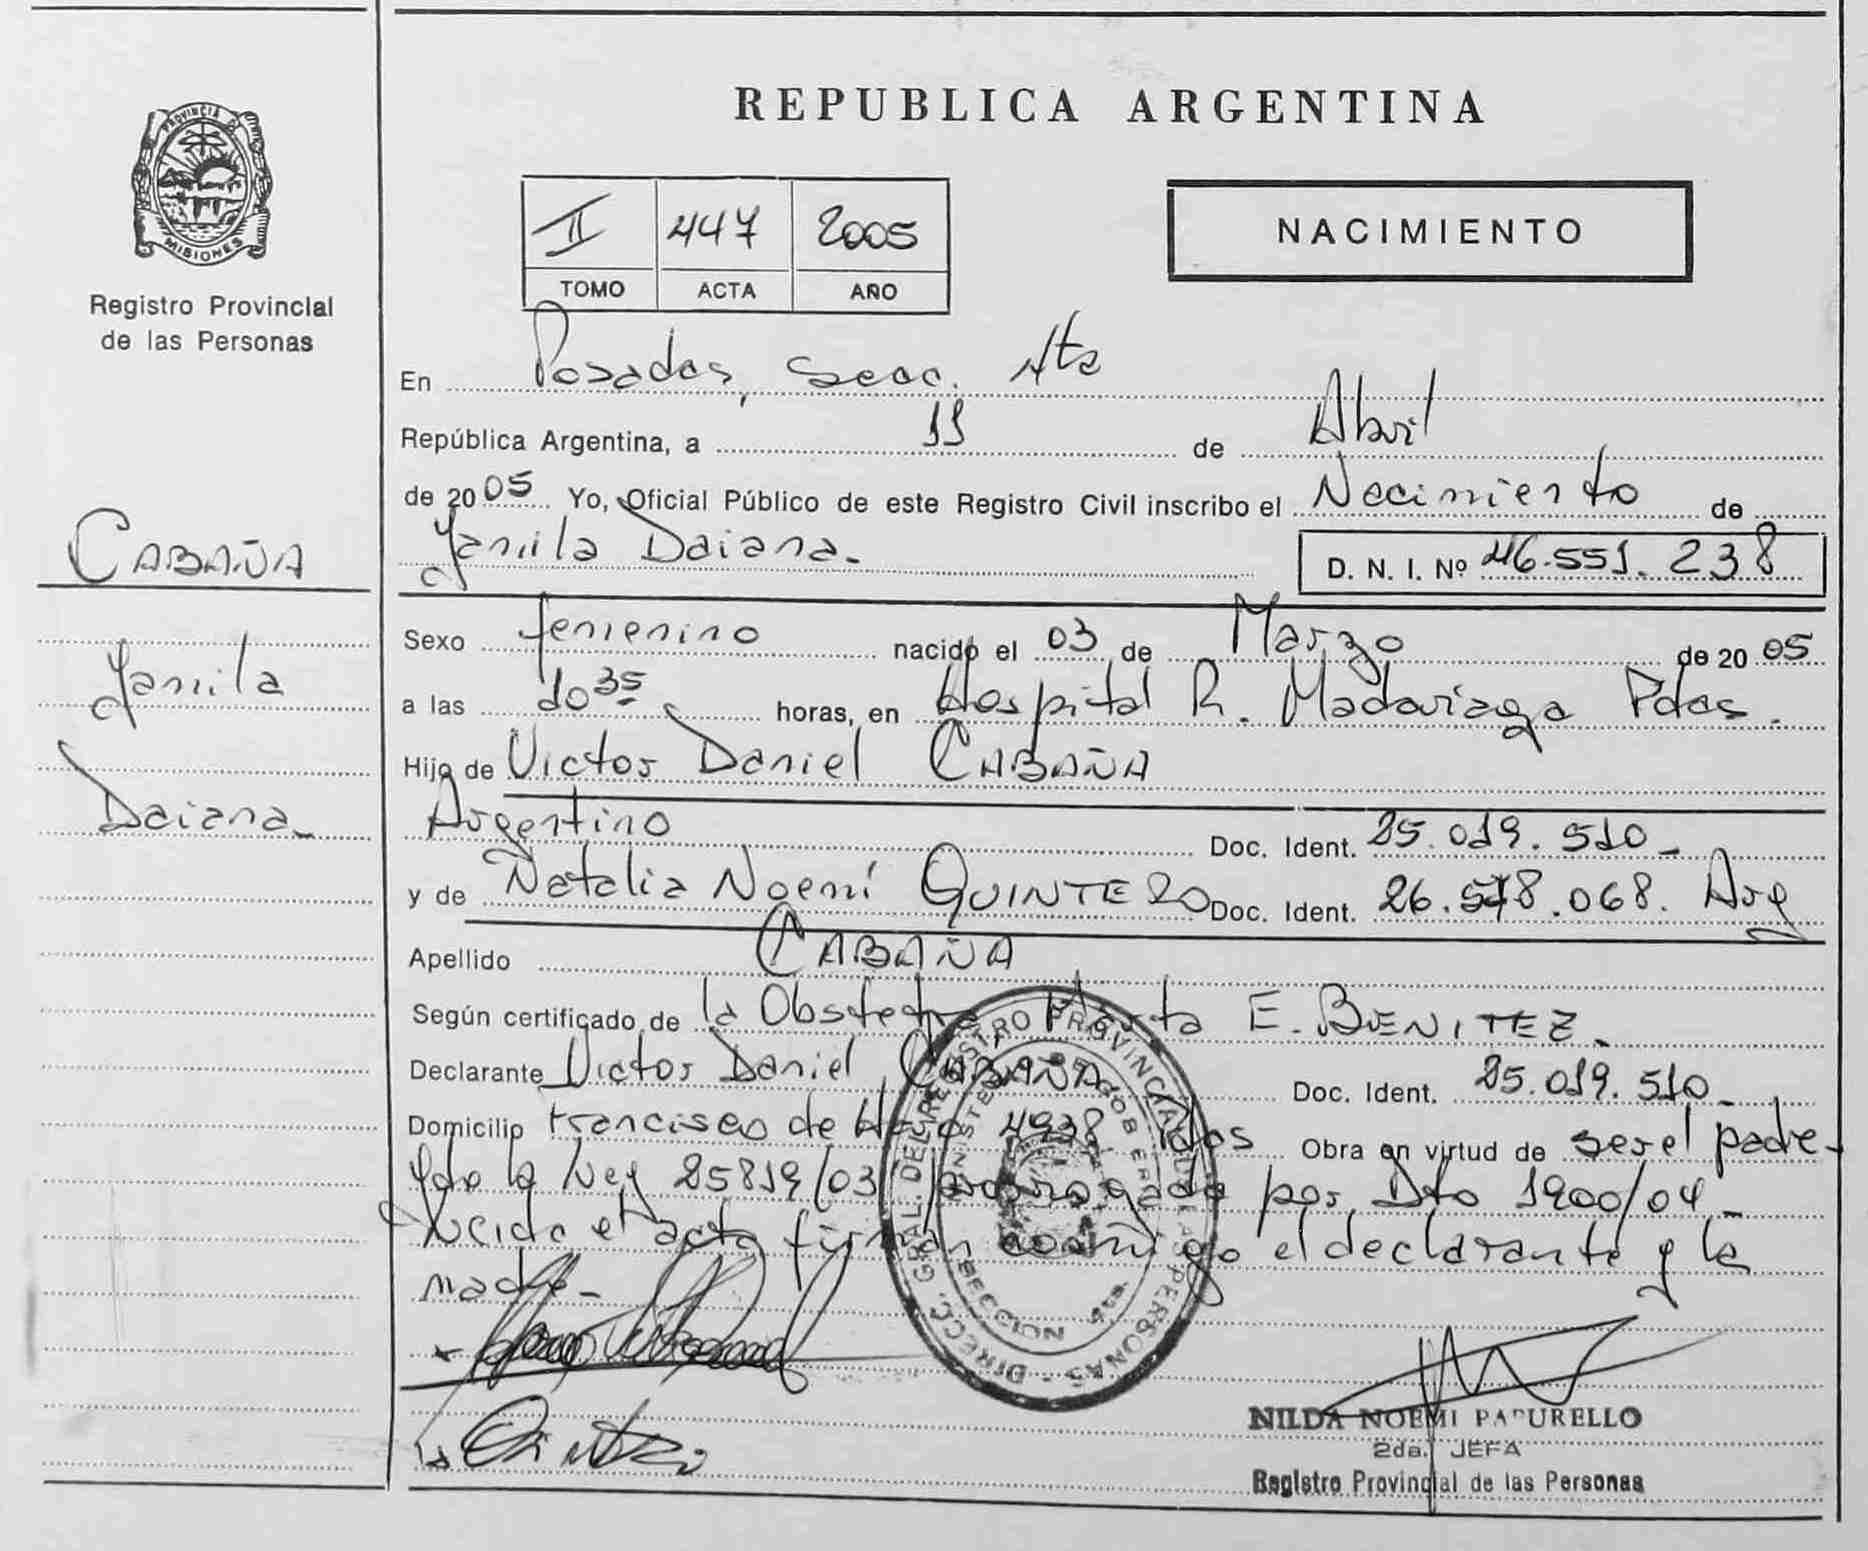 PROVINCIA DE
MISIONES
Registro Provincial
de las Personas
CABAÑA
Yamila
Daiana
REPUBLICA ARGENTINA
II 447 2005
TOMO ACTA AÑO
NACIMIENTO
En Posadas, Secc. 4ta
República Argentina, a 11 de Abril
de 2005 Yo, Oficial Público de este Registro Civil inscribo el Nacimiento de
Yamila Daiana.
D. N. I. Nº 46.551.238
Sexo femenino nacido el 03 de Marzo de 2005
a las 10 35 horas, en Hospital R. Madariaga Pdas.
Hijo de Victor Daniel CABAÑA
Argentino Doc. Ident. 25.019.510_
y de Natalia Noemí QUINTERO Doc. Ident. 26.578.068. Arg
Apellido CABAÑA
Según certificado de la Obstetra Marta E. BENITEZ.
Declarante Victor Daniel CABAÑA Doc. Ident. 25.019.510_
Domicilio Francisco de Haro 4938 Pdas Obra en virtud de ser el padre-
y de la Ley 25819/03 prorrogada por Dto 1900/04_
Leída el acta firman conmigo el declarante y la
madre_
DIRECC. GRAL. DEL REGISTRO PROVINCIAL DE LAS PERSONAS
MINISTERIO DE GOBIERNO
SECCION 4ta.
NILDA NOEMI PAPURELLO
2da. JEFA
Registro Provincial de las Personas